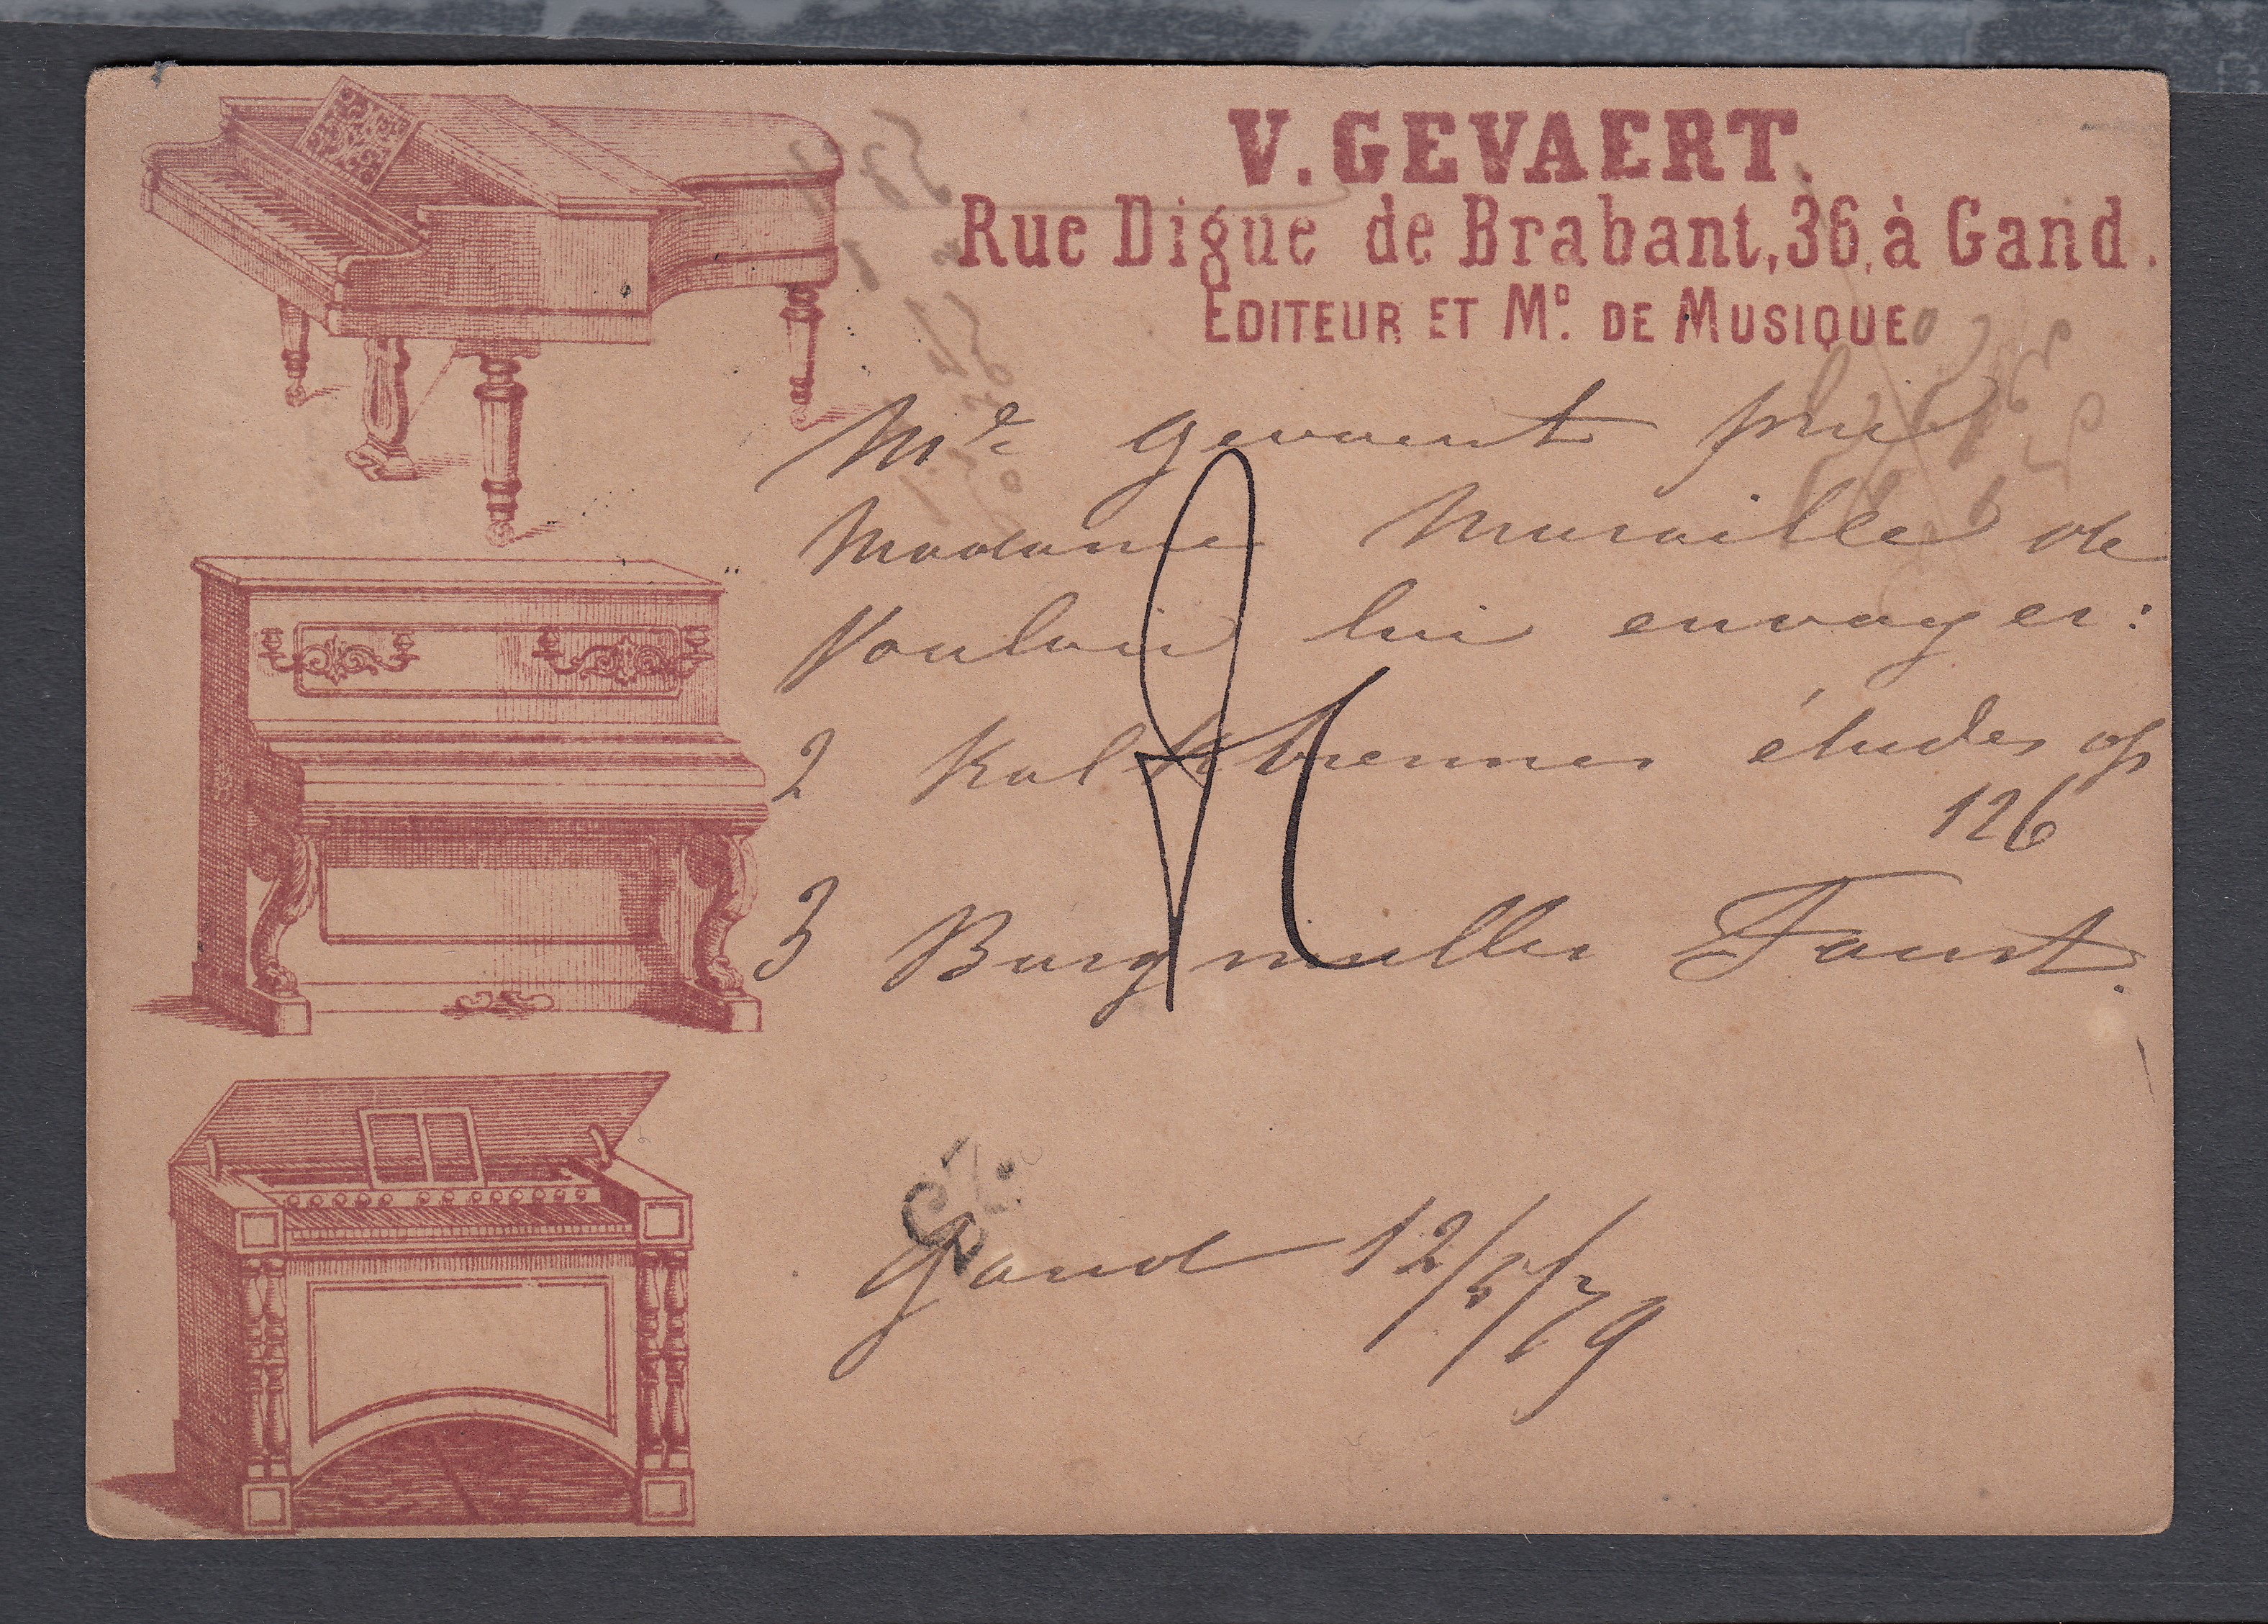 V. GEVAERT.
Rue Digue de Brabant, 36, à Gand.
EDITEUR ET MD. DE MUSIQUE
Mde Gevaert prie
Madame Muraille de
Vouloir lui envoyer:
2 Kalkbrenner études op
126
3 Burgmuller Faust.
Gand 12/5/79